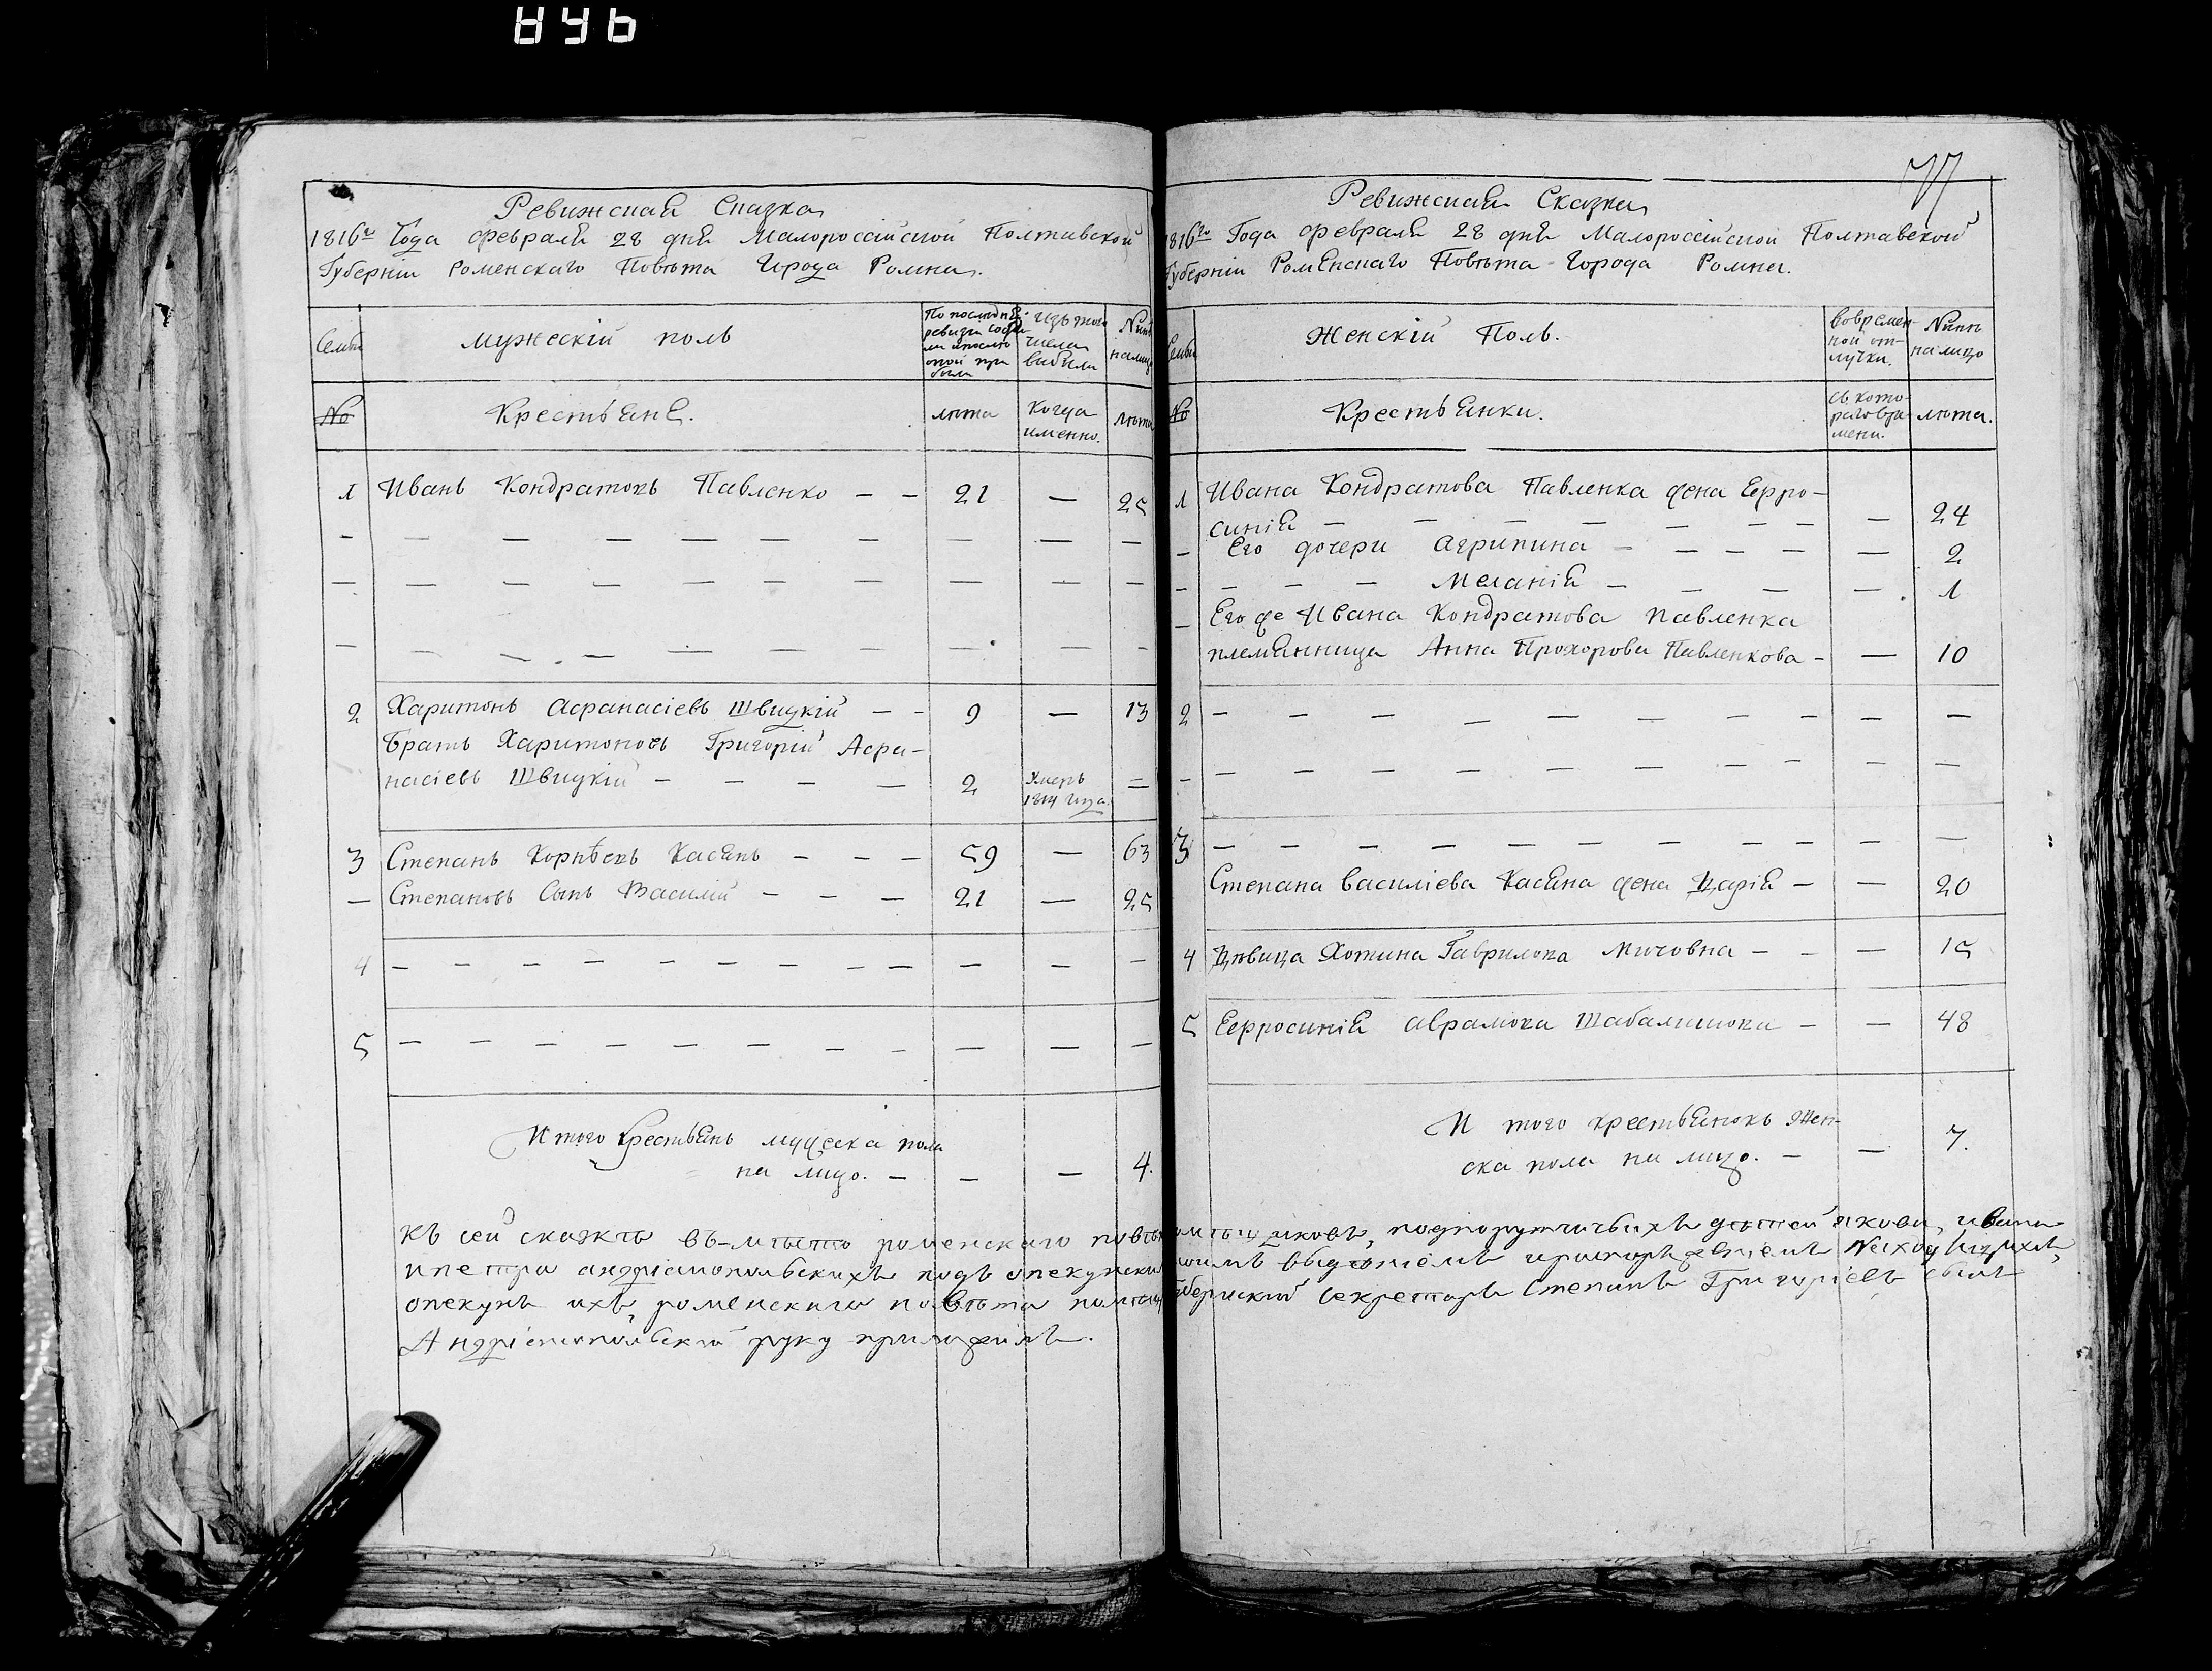 846
Ревижская Сказка
1816го Года февраля 28 дня Малороссійской Полтавской
Губерніи Роменскаго Повѣта Города Ромна.
Семьи
мужескій полъ
По последней
ревизіи состо
и после
оной при
были
изъ того
числа
выбыли
Ныне
налицо
№
Крестьяне.
лѣта
Когда
именно.
лѣта
1 Иванъ Кондратовъ Павленко — — 21 — 25
2 Харитонъ Афанасіевъ Швицкій — — 9 — 13
Братъ Харитоновъ Григорій Афа-
насіевъ Швицкій — — — — 2 Умеръ 1814 года —
3 Степанъ Корнѣевъ Касянъ — — — 59 — 63
— Степановъ Сынъ Василій — — — 21 — 25
4 — — — — — — — — — — —
5 — — — — — — — — — — —
Итого крестьянъ мужеска пола
на лицо. — — — 4.
77
Ревижская Сказка
1816го Года февраля 28 дня Малороссійской Полтавской
Губерніи Роменскаго Повѣта Города Ромна.
Семьи
Женскій Полъ.
Вовремен-
ной от-
лучки.
Нынѣ
налицо
№
Крестьянки.
съ кото-
раго вре-
мени.
лѣта.
1 Ивана Кондратова Павленка жена Ефро-
синія — — — — — — — — 24
— Его дочери Агрипина — — — — — 2
— — — — Меланія — — — — — 1
— Его же Ивана Кондратова Павленка
племянница Анна Прохорова Павленкова — — 10
2 — — — — — — — — — —
— — — — — — — — — —
3 — — — — — — — — — —
Степана Василіева Касяна жена Дарія — — 20
4 Дѣвица Хотина Гаврилова Мичовна — — — 15
5 Ефросинія Аврамова Шабалишова — — 48
И того крестьянокъ Жен-
ска пола на лицо. — — 7.
Къ сей сказкѣ въ-мѣсто роменскаго повѣта помѣщиковъ, подпорутчичьихъ дѣтей Якова, ивана
ипетра андріанопольскихъ подъ опекунскимъ моимъ
опекунъ ихъ, роменскаго повѣта помѣщикъ губернский секретарь Степанъ Григоріевъ сынъ
Андріанопольский руку приложилъ.